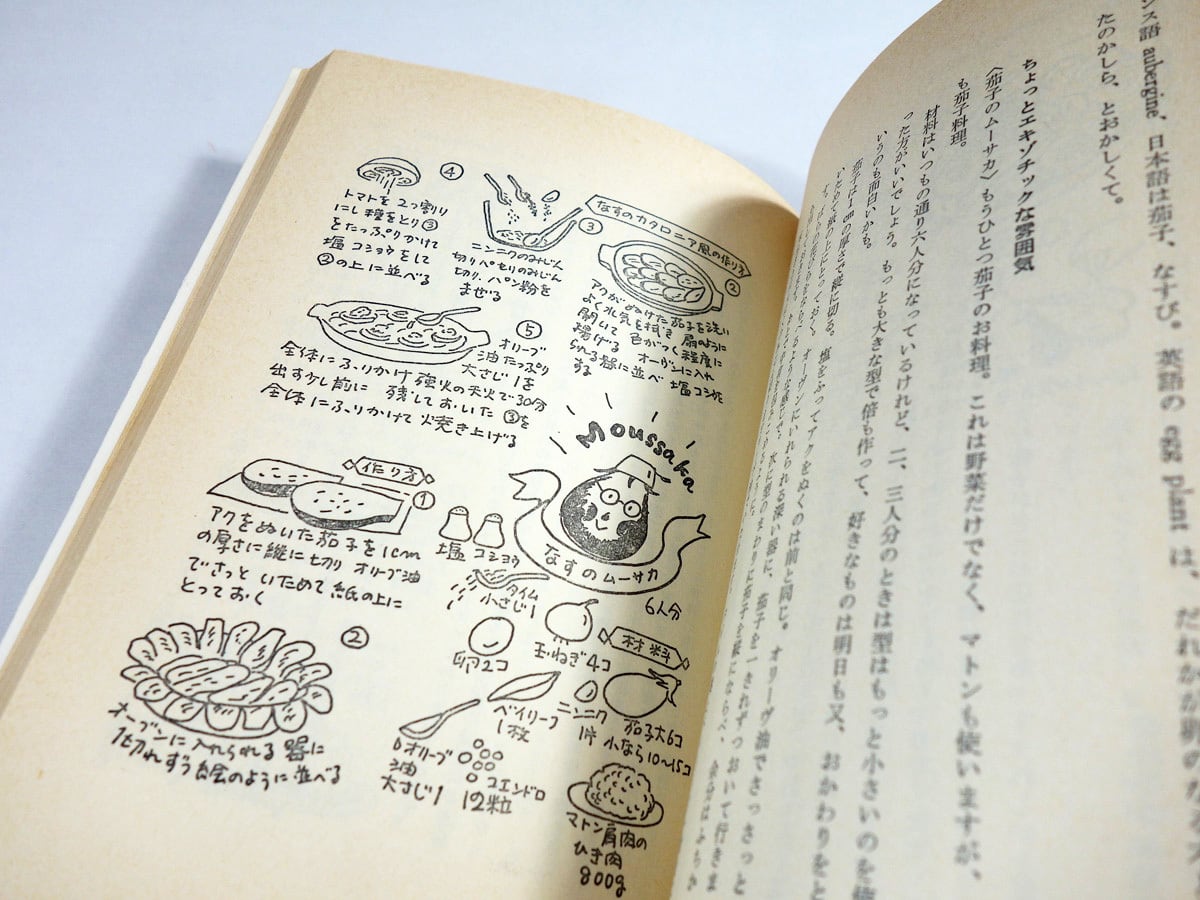 ンス語 aubergine、日本語は茄子、なすび。英語の egg plant は、だれかが卵のなる
たのかしら、とおかしくて。
ちょっとエキゾチックな雰囲気
〈茄子のムーサカ〉もうひとつ茄子のお料理。これは野菜だけでなく、マトンも使いますが、
も茄子料理。
材料はいつもの通り六人分になっているけれど、二、三人分のときは型はもっと小さいのを使
った方がいいでしょう。もっとも大きな型で倍も作って、好きなものは明日も又、おかわりをと
いうのも面白いかも。
茄子は1cmの厚さで縦に切る。塩をふってアクをぬくのは前と同じ。オリーヴ油でさっさっと
いためて紙の上にとっておく。オーヴンにいれられる深い器に、茄子を一きれずつおいて行きま
なすのカタロニア風の作り方
②
アクがぬけた茄子を洗い
よく水気を拭き 扇のように
開いて 色がつく程度に
揚げる オーブンに入れ
られる器に並べ 塩コショウ
する
③
ニンニクのみじん
切りパセリのみじん
切り、パン粉を
まぜる
④
トマトを2つ割り
にし種をとり③
をたっぷりかけて
塩コショウをして
②の上に並べる
⑤
オリーブ
油たっぷり
大さじ1を
全体にふりかけ 強火の天火で30分
出す少し前に 残しておいた③を
全体にふりかけて焼き上げる
Moussaka
なすのムーサカ
6人分
材料
茄子大6コ
小なら10〜15コ
ニンニク
1片
玉ねぎ4コ
マトン肩肉の
ひき肉
800g
ベイリーフ
1枚
コエンドロ
12粒
オリーブ
油
大さじ1
卵2コ
タイム
小さじ1
塩 コショウ
作り方
①
アクをぬいた茄子を1cm
の厚さに縦に切り オリーブ油
でさっと いためて紙の上に
とっておく
②
オーブンに入れられる器に
1切れずつ絵のように並べる